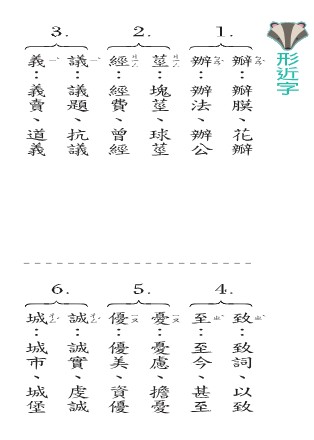 形近字
1.
瓣ㄅㄢˋ：瓣膜、花瓣
辦ㄅㄢˋ：辦法、辦公
2.
莖ㄐㄧㄥ：塊莖、球莖
經ㄐㄧㄥ：經費、曾經
3.
議ㄧˋ：議題、抗議
義ㄧˋ：義賣、道義
4.
致ㄓˋ：致詞、以致
至ㄓˋ：至今、甚至
5.
憂ㄧㄡ：憂慮、擔憂
優ㄧㄡ：優美、資優
6.
誠ㄔㄥˊ：誠實、虔誠
城ㄔㄥˊ：城市、城堡